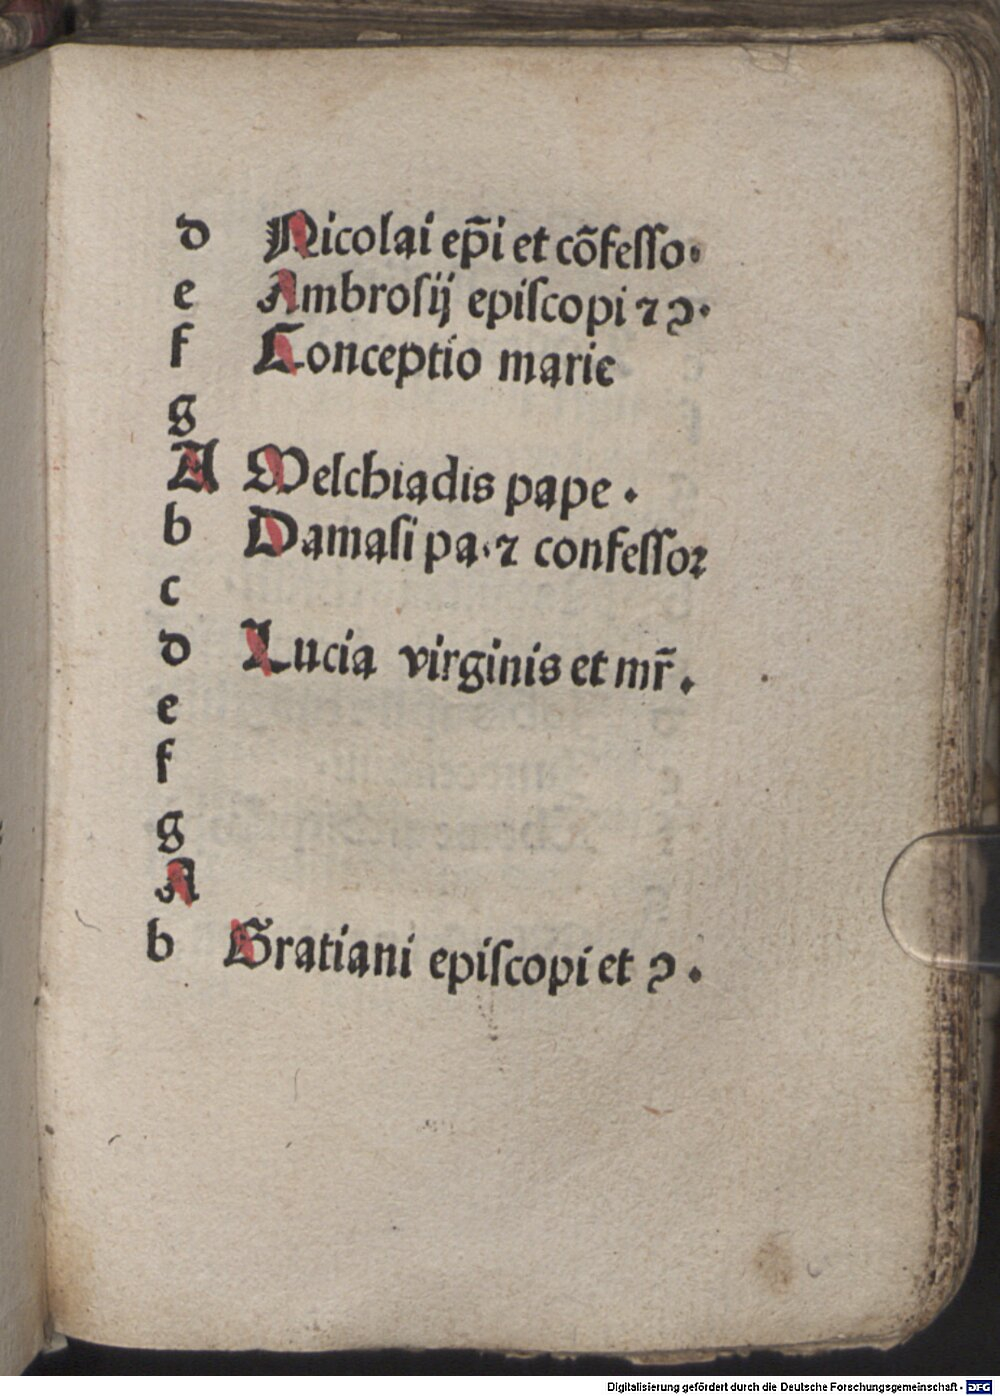 d Nicolai ep̃i et cõfesso.
e Ambrosij episcopi ⁊ ꝯ.
f Conceptio marie
g
A Melchiadis pape .
b Damasi pa.⁊ confessor
c
d Lucia virginis et mr̃.
e
f
g
A
b Gratiani episcopi et ꝯ.
Digitalisierung gefördert durch die Deutsche Forschungsgemeinschaft - DFG